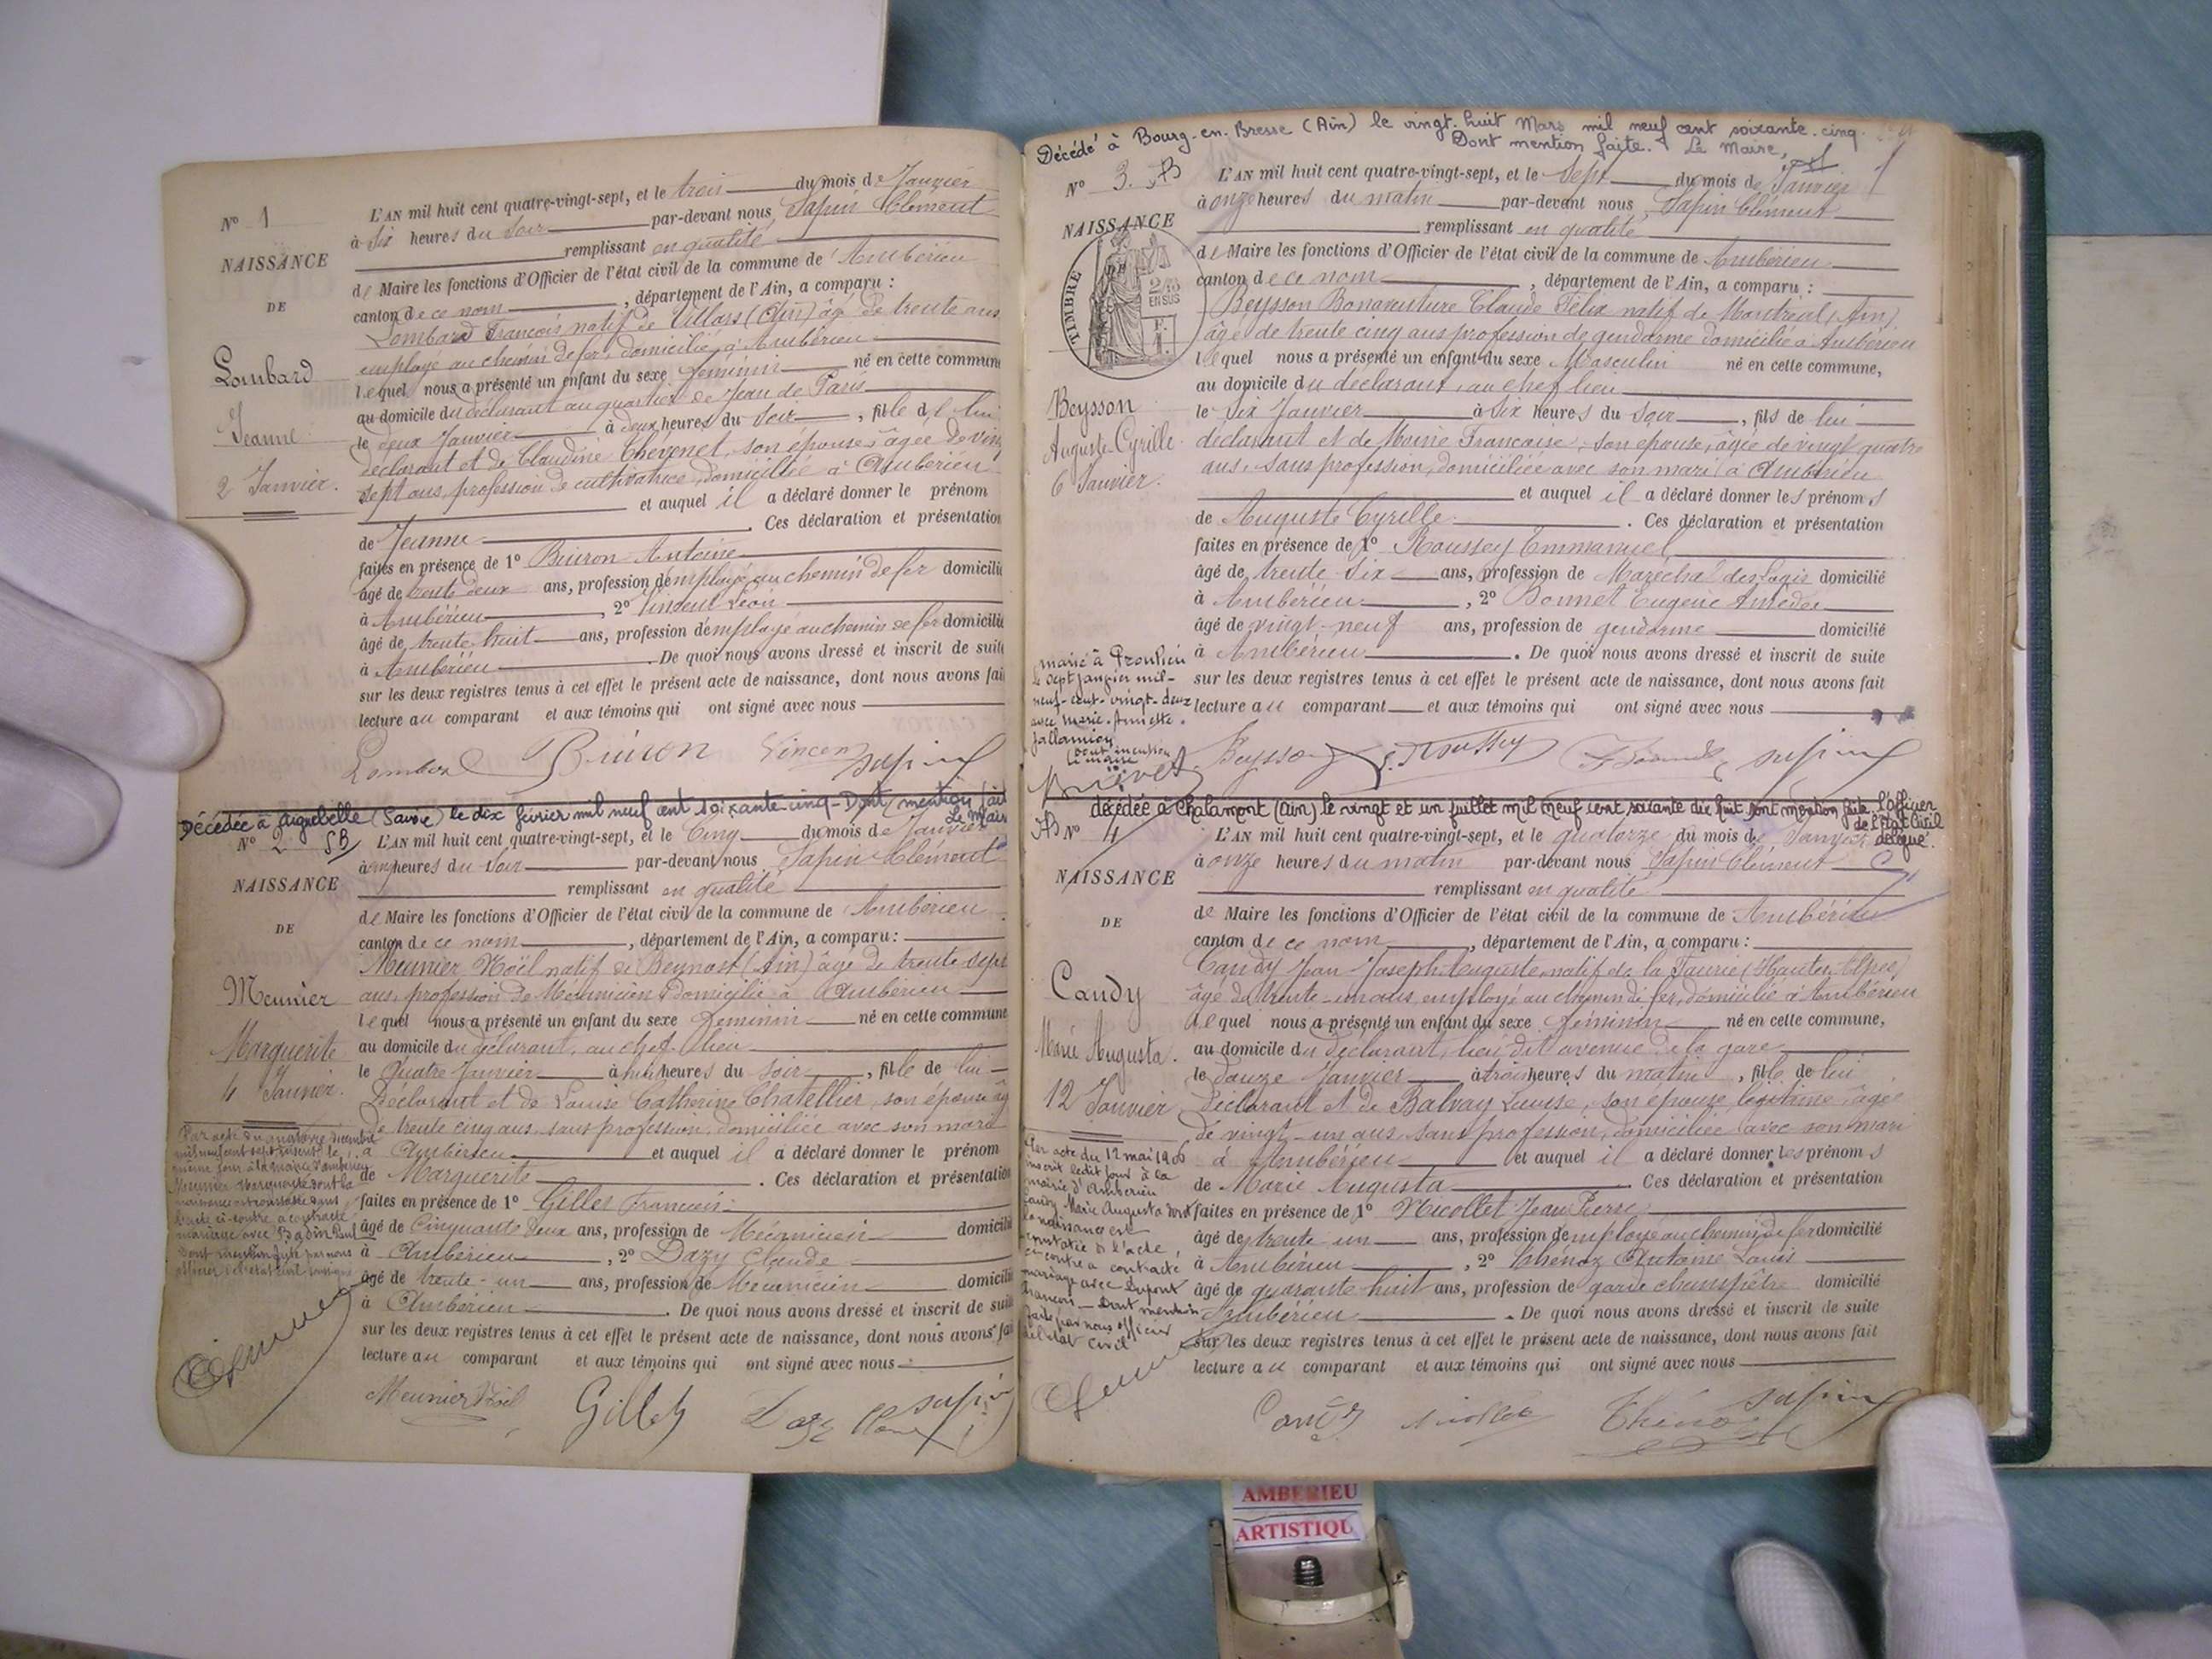 N° 1
NAISSANCE
DE
Lombard
Jeanne
2 Janvier.
L'AN mil huit cent quatre-vingt-sept, et le trois du mois de Janvier
à six heures du soir par-devant nous Sapin Clément
remplissant en qualité
de Maire les fonctions d'Officier de l'état civil de la commune de Ambérieu
canton de ce nom, département de l'Ain, a comparu :
Lombard François natif de Villars (Ain) âgé de trente ans
employé au chemin de fer, domicilié à Ambérieu
lequel nous a présenté un enfant du sexe féminin né en cette commune
au domicile du déclarant au quartier de Jean de Paris
le deux Janvier à deux heures du soir, fille de lui
déclarant et de Claudine Thévenet, son épouse, âgée de vingt
sept ans, profession de cultivatrice, domiciliée à Ambérieu
et auquel il a déclaré donner le prénom
de Jeanne. Ces déclaration et présentation
faites en présence de 1° Antoine
âgé de trente deux ans, profession d'employé au chemin de fer domicilié
à Ambérieu, 2° Vincent Léon
âgé de trente huit ans, profession d'employé au chemin de fer domicilié
à Ambérieu. De quoi nous avons dressé et inscrit de suite
sur les deux registres tenus à cet effet le présent acte de naissance, dont nous avons fait
lecture au comparant et aux témoins qui ont signé avec nous
Lombard Vincent Sapin
Décédée à Aiguebelle (Savoie) le dix février mil neuf cent soixante-cinq - Dont mention fait
Le Maire
N° 2 SB
NAISSANCE
DE
Meunier
Marguerite
4 Janvier.
L'AN mil huit cent quatre-vingt-sept, et le cinq du mois de Janvier
à heures du soir par-devant nous Sapin Clément
remplissant en qualité
de Maire les fonctions d'Officier de l'état civil de la commune de Ambérieu
canton de ce nom, département de l'Ain, a comparu :
Meunier Noël natif de Beynost (Ain) âgé de trente sept
ans, profession de Mécanicien domicilié à Ambérieu
lequel nous a présenté un enfant du sexe féminin né en cette commune
au domicile du déclarant, au chef-lieu
le quatre Janvier à huit heures du soir, fille de lui
déclarant et de Louise Catherine Chatellier, son épouse âg
de trente cinq ans, sans profession, domiciliée avec son mari
à Ambérieu et auquel il a déclaré donner le prénom
de Marguerite. Ces déclaration et présentation
faites en présence de 1° Gillet François
âgé de cinquante deux ans, profession de Mécanicien domicilié
à Ambérieu, 2° Dazy Claude
âgé de trente-un ans, profession de Mécanicien domicilié
à Ambérieu. De quoi nous avons dressé et inscrit de suite
sur les deux registres tenus à cet effet le présent acte de naissance, dont nous avons fait
lecture au comparant et aux témoins qui ont signé avec nous
Par acte du quatorze décembre
mil neuf cent sept inscrit le
même jour à la mairie d'Ambérieu
Meunier Marguerite dont la
naissance est constatée dans
l'acte ci-contre a contracté
mariage avec Badin Paul
Dont mention faite par nous
officier de l'état civil soussigné
Meunier Noël Gillet Dazy Claude Sapin
Décédé à Bourg-en-Bresse (Ain) le vingt-huit Mars mil neuf cent soixante-cinq
Dont mention faite. Le Maire,
N° 3. AB
NAISSANCE
DE
TIMBRE
2/10
EN SUS
Beysson
Auguste Cyrille
6 Janvier.
L'AN mil huit cent quatre-vingt-sept, et le sept du mois de Janvier
à onze heures du matin par-devant nous Sapin Clément
remplissant en qualité
de Maire les fonctions d'Officier de l'état civil de la commune de Ambérieu
canton de ce nom, département de l'Ain, a comparu :
Beysson Bonaventure Claude Félix natif de Montréal (Ain)
âgé de trente cinq ans profession de gendarme domicilié à Ambérieu
lequel nous a présenté un enfant du sexe Masculin né en cette commune,
au domicile du déclarant, au chef lieu
le six Janvier à six heures du soir, fils de lui
déclarant et de Moine Françoise, son épouse, âgée de vingt quatre
ans, sans profession, domiciliée avec son mari à Ambérieu
et auquel il a déclaré donner les prénoms
de Auguste Cyrille. Ces déclaration et présentation
faites en présence de 1° Roussey Emmanuel
âgé de trente six ans, profession de Maréchal des logis domicilié
à Ambérieu, 2° Bonnet Eugène Amédée
âgé de vingt-neuf ans, profession de gendarme domicilié
à Ambérieu. De quoi nous avons dressé et inscrit de suite
sur les deux registres tenus à cet effet le présent acte de naissance, dont nous avons fait
lecture au comparant et aux témoins qui ont signé avec nous
marié à Proulieu
le sept janvier mil-
neuf-cent-vingt-deux
avec Marie-
Jallamion
Dont mention
Le maire
Beysson E. Roussey Sapin
décédée à Chalamont (Ain) le vingt et un juillet mil neuf cent soixante dix huit dont mention faite. l'officier
de l'Etat Civil
délégué.
AB N° 4
NAISSANCE
DE
Candy
Marie Augusta.
12 Janvier
L'AN mil huit cent quatre-vingt-sept, et le quatorze du mois de Janvier
à onze heures du matin par-devant nous Sapin Clément
remplissant en qualité
de Maire les fonctions d'Officier de l'état civil de la commune de Ambérieu
canton de ce nom, département de l'Ain, a comparu :
Candy Jean Joseph Auguste natif de la Faurie (Hautes Alpes)
âgé de trente-un ans, employé au chemin de fer, domicilié à Ambérieu
lequel nous a présenté un enfant du sexe féminin né en cette commune,
au domicile du déclarant, lieu dit avenue de la gare
le douze Janvier à trois heures du matin, fille de lui
déclarant et de Balvay Louise, son épouse légitime âgée
de vingt-un ans, sans profession, domiciliée avec son mari
à Ambérieu et auquel il a déclaré donner les prénoms
de Marie Augusta. Ces déclaration et présentation
faites en présence de 1° Nicollet Jean Pierre
âgé de trente un ans, profession d'employé au chemin de fer domicilié
à Ambérieu, 2° Thénoz Antoine Louis
âgé de quarante huit ans, profession de garde champêtre domicilié
Ambérieu. De quoi nous avons dressé et inscrit de suite
sur les deux registres tenus à cet effet le présent acte de naissance, dont nous avons fait
lecture au comparant et aux témoins qui ont signé avec nous
Par acte du 12 mai 1906
inscrit ledit jour à la
mairie d'Ambérieu
Candy Marie Augusta dont
la naissance est
constatée à l'acte
ci-contre a contracté
mariage avec Dupont
François - Dont mention
faite par nous officier
de l'état civil
Candy Nicollet Thénoz Sapin
AMBERIEU
ARTISTIQU